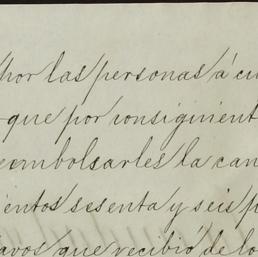 por las personas á cu
que por consiguient
eembolsarles la can
ientos sesenta y seis p
avos que recibió de lo